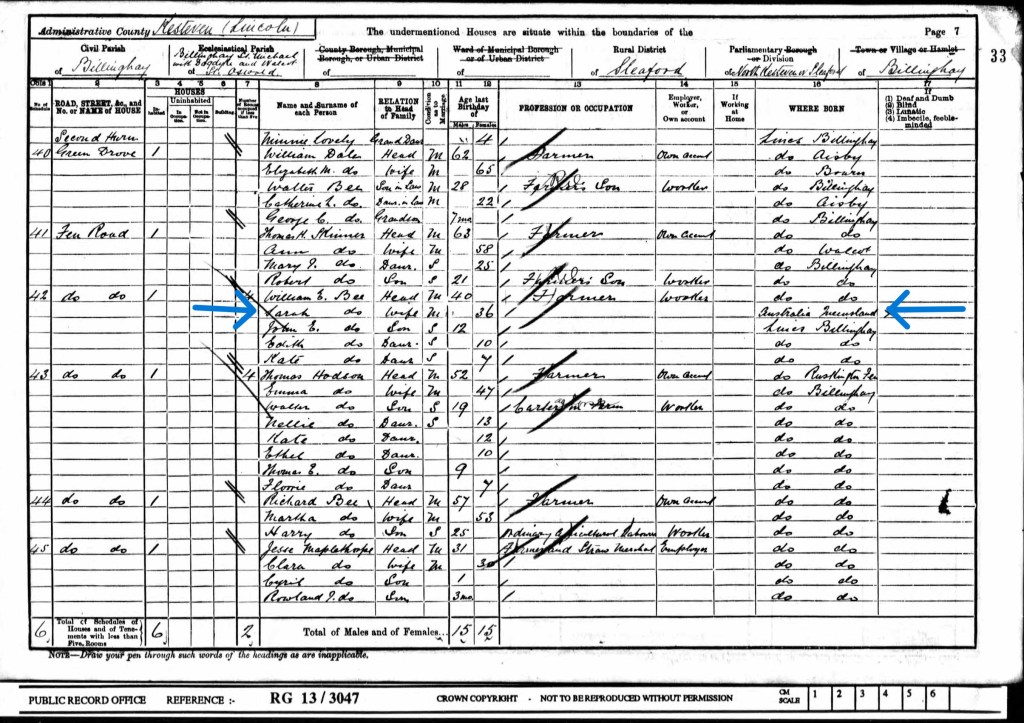 Administrative County Kesteven (Lincoln) The undermentioned Houses are situate within the boundaries of the Page 7
33
Civil Parish Ecclesiastical Parish County Borough, Municipal Ward of Municipal Borough Rural District Parliamentary Borough Town or Village or Hamlet
Borough, or Urban District or of Urban District or Division
of Billinghay Billinghay St. Michael with Dogdyke and Walcot St. Oswald of of of Sleaford of North Kesteven or Sleaford of Billinghay
Cols 1 2 3 4 5 6 7 8 9 10 11 12 13 14 15 16 17
No. of Schedule ROAD, STREET, &c., and No. or NAME of HOUSE HOUSES Inhabited Uninhabited In Occupation Not in Occupation Building Name and Surname of each Person RELATION to Head of Family Condition as to Marriage Age last Birthday of Males Females PROFESSION OR OCCUPATION Employer, Worker, or Own account If Working at Home WHERE BORN If (1) Deaf and Dumb (2) Blind (3) Lunatic (4) Imbecile, feeble-minded
Second Thurn Minnie Lovely Grand Daur 4 Lincs Billinghay
40 Green Drove 1 William Dale Head M 62 Farmer Own acunt do Aisby
Elizabeth M. do Wife M 65 do Bourn
Walter Bee Son in Law M 28 Farmer's Son Worker do Billinghay
Catherine L. do. Daur. in Law M 22 do Aisby
George C. do. Grandson 7mo. do Billinghay
41 Fen Road 1 Thomas H. Skinner Head M 63 Farmer Own acunt do do
Ann do Wife M 58 do Walcot
Mary J. do Daur. S 25 do Billinghay
Robert do Son S 21 Farmer's Son Worker do do
42 do do 1 4 William E. Bee Head M 40 Farmer Worker do do
Sarah do Wife M 36 Australia Queensland
John E. do Son S 12 Lincs Billinghay
Edith do Daur. S 10 do do
Kate do Daur S 7 do do
43 do do 1 4 Thomas Hodson Head M 52 Farmer Own acunt do Ruskington Fen
Emma do Wife M 47 do Billinghay
Walter do Son S 19 Carter on Farm Worker do do
Nellie do Daur. S 13 do do
Kate do Daur. 12 do do
Ethel do Daur. 10 do do
Thomas E. do Son 9 do do
Florrie do Daur 7 do do
44 do do 1 Richard Bee Head M 57 Farmer Own acunt do do
Martha do Wife M 53 do do
Harry do Son S 25 Ordinary Agricultural Labourer Worker do do
45 do do 1 Jesse Maplethorpe Head M 31 Farmer and Straw Merchant Employer do do
Clara do Wife M 30 do do
Cyril do Son 1 do do
Rowland J. do Son 3mo. do do
6 Total of Schedules of Houses and of Tenements with less than Five Rooms 6 2 Total of Males and of Females... 15 15
NOTE—Draw your pen through such words of the headings as are inapplicable.
PUBLIC RECORD OFFICE REFERENCE :- RG 13/3047 CROWN COPYRIGHT - NOT TO BE REPRODUCED WITHOUT PERMISSION CM SCALE 1 2 3 4 5 6